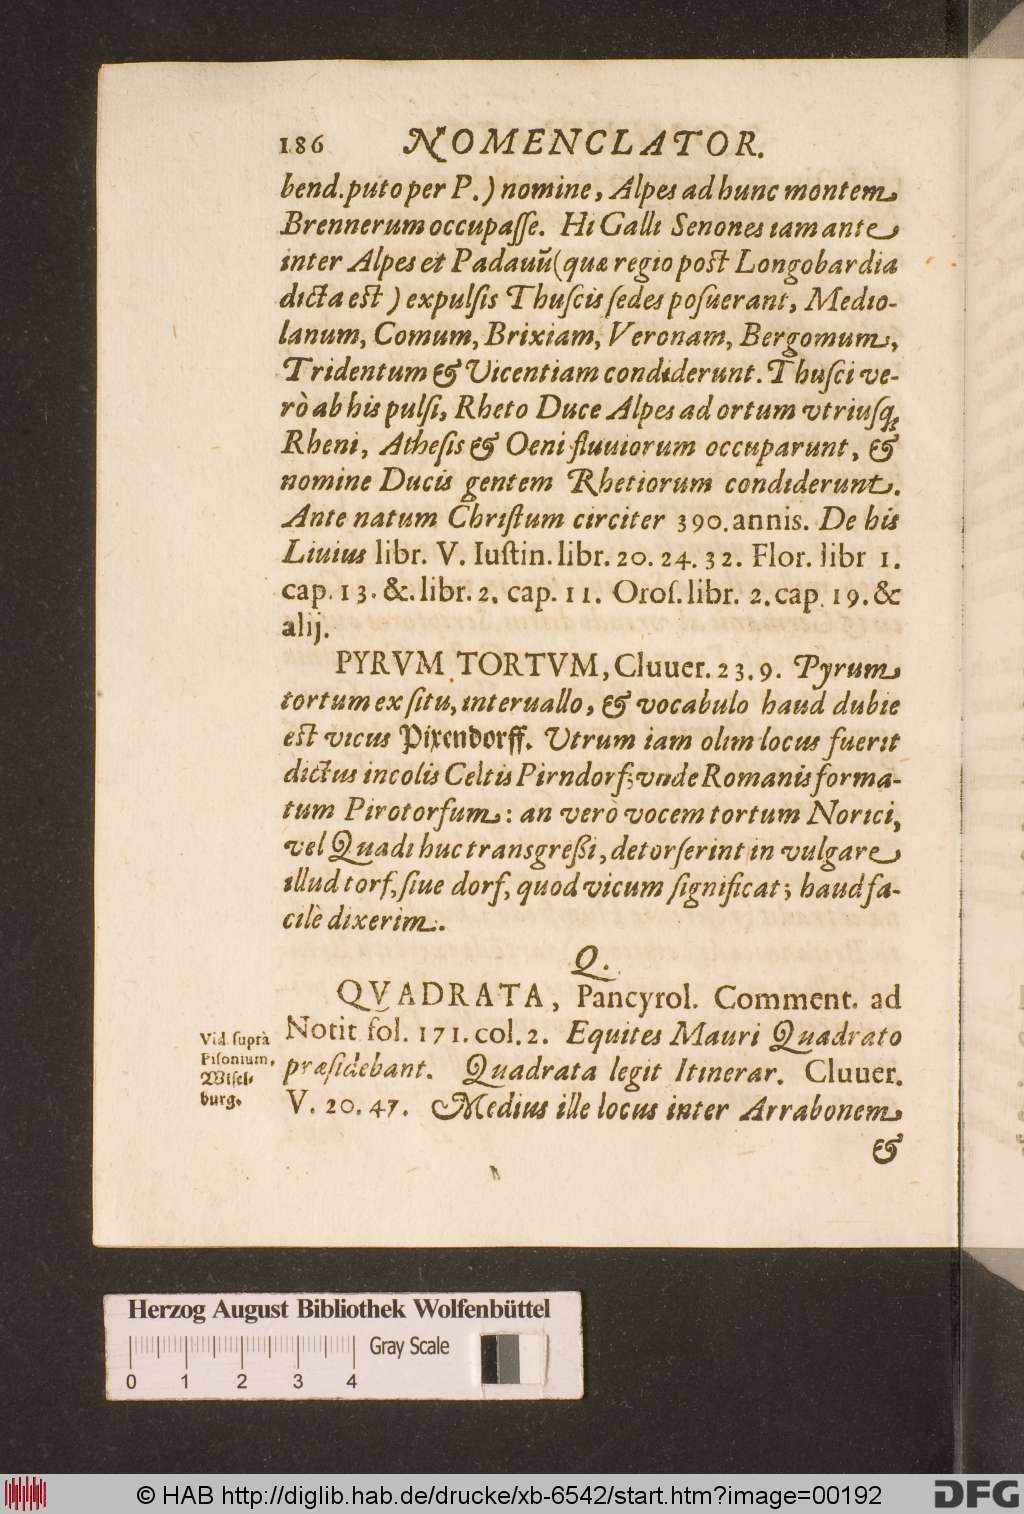 186 NOMENCLATOR.
bend. puto per P.) nomine, Alpes ad hunc montem
Brennerum occupaſſe. Hi Galli Senones iam ante
inter Alpes et Padauū (quæ regio post Longobardia
dicta est) expulſis Thuſcis ſedes poſuerant, Medio-
lanum, Comum, Brixiam, Veronam, Bergomum,
Tridentum & Vicentiam condiderunt. Thuſci ve-
rò ab his pulſi, Rheto Duce Alpes ad ortum vtriuſq;
Rheni, Atheſis & Oeni fluuiorum occuparunt, &
nomine Ducis gentem Rhetiorum condiderunt.
Ante natum Chriſtum circiter 390. annis. De his
Liuius libr. V. Iuſtin. libr. 20. 24. 32. Flor. libr 1.
cap. 13. &. libr. 2. cap. 11. Oroſ. libr. 2. cap. 19. &
alij.
PYRVM TORTVM, Cluuer. 23. 9. Pyrum
tortum ex ſitu, interuallo, & vocabulo haud dubie
est vicus Pixendorff. Vtrum iam olim locus fuerit
dictus incolis Celtis Pirndorf; vnde Romanis forma-
tum Pirotorfum: an verò vocem tortum Norici,
vel Quadi huc transgreßi, detorſerint in vulgare
illud torf, ſiue dorf, quod vicum ſignificat; haud fa-
cilè dixerim.
Q.
QVADRATA, Pancyrol. Comment. ad
Notit fol. 171. col. 2. Equites Mauri Quadrato
præſidebant. Quadrata legit Itinerar. Cluuer.
V. 20. 47. Medius ille locus inter Arrabonem
&
Vid. ſuprà
Piſonium.
Wiſel-
burg.
Herzog August Bibliothek Wolfenbüttel
Gray Scale
0 1 2 3 4
© HAB http://diglib.hab.de/drucke/xb-6542/start.htm?image=00192
DFG